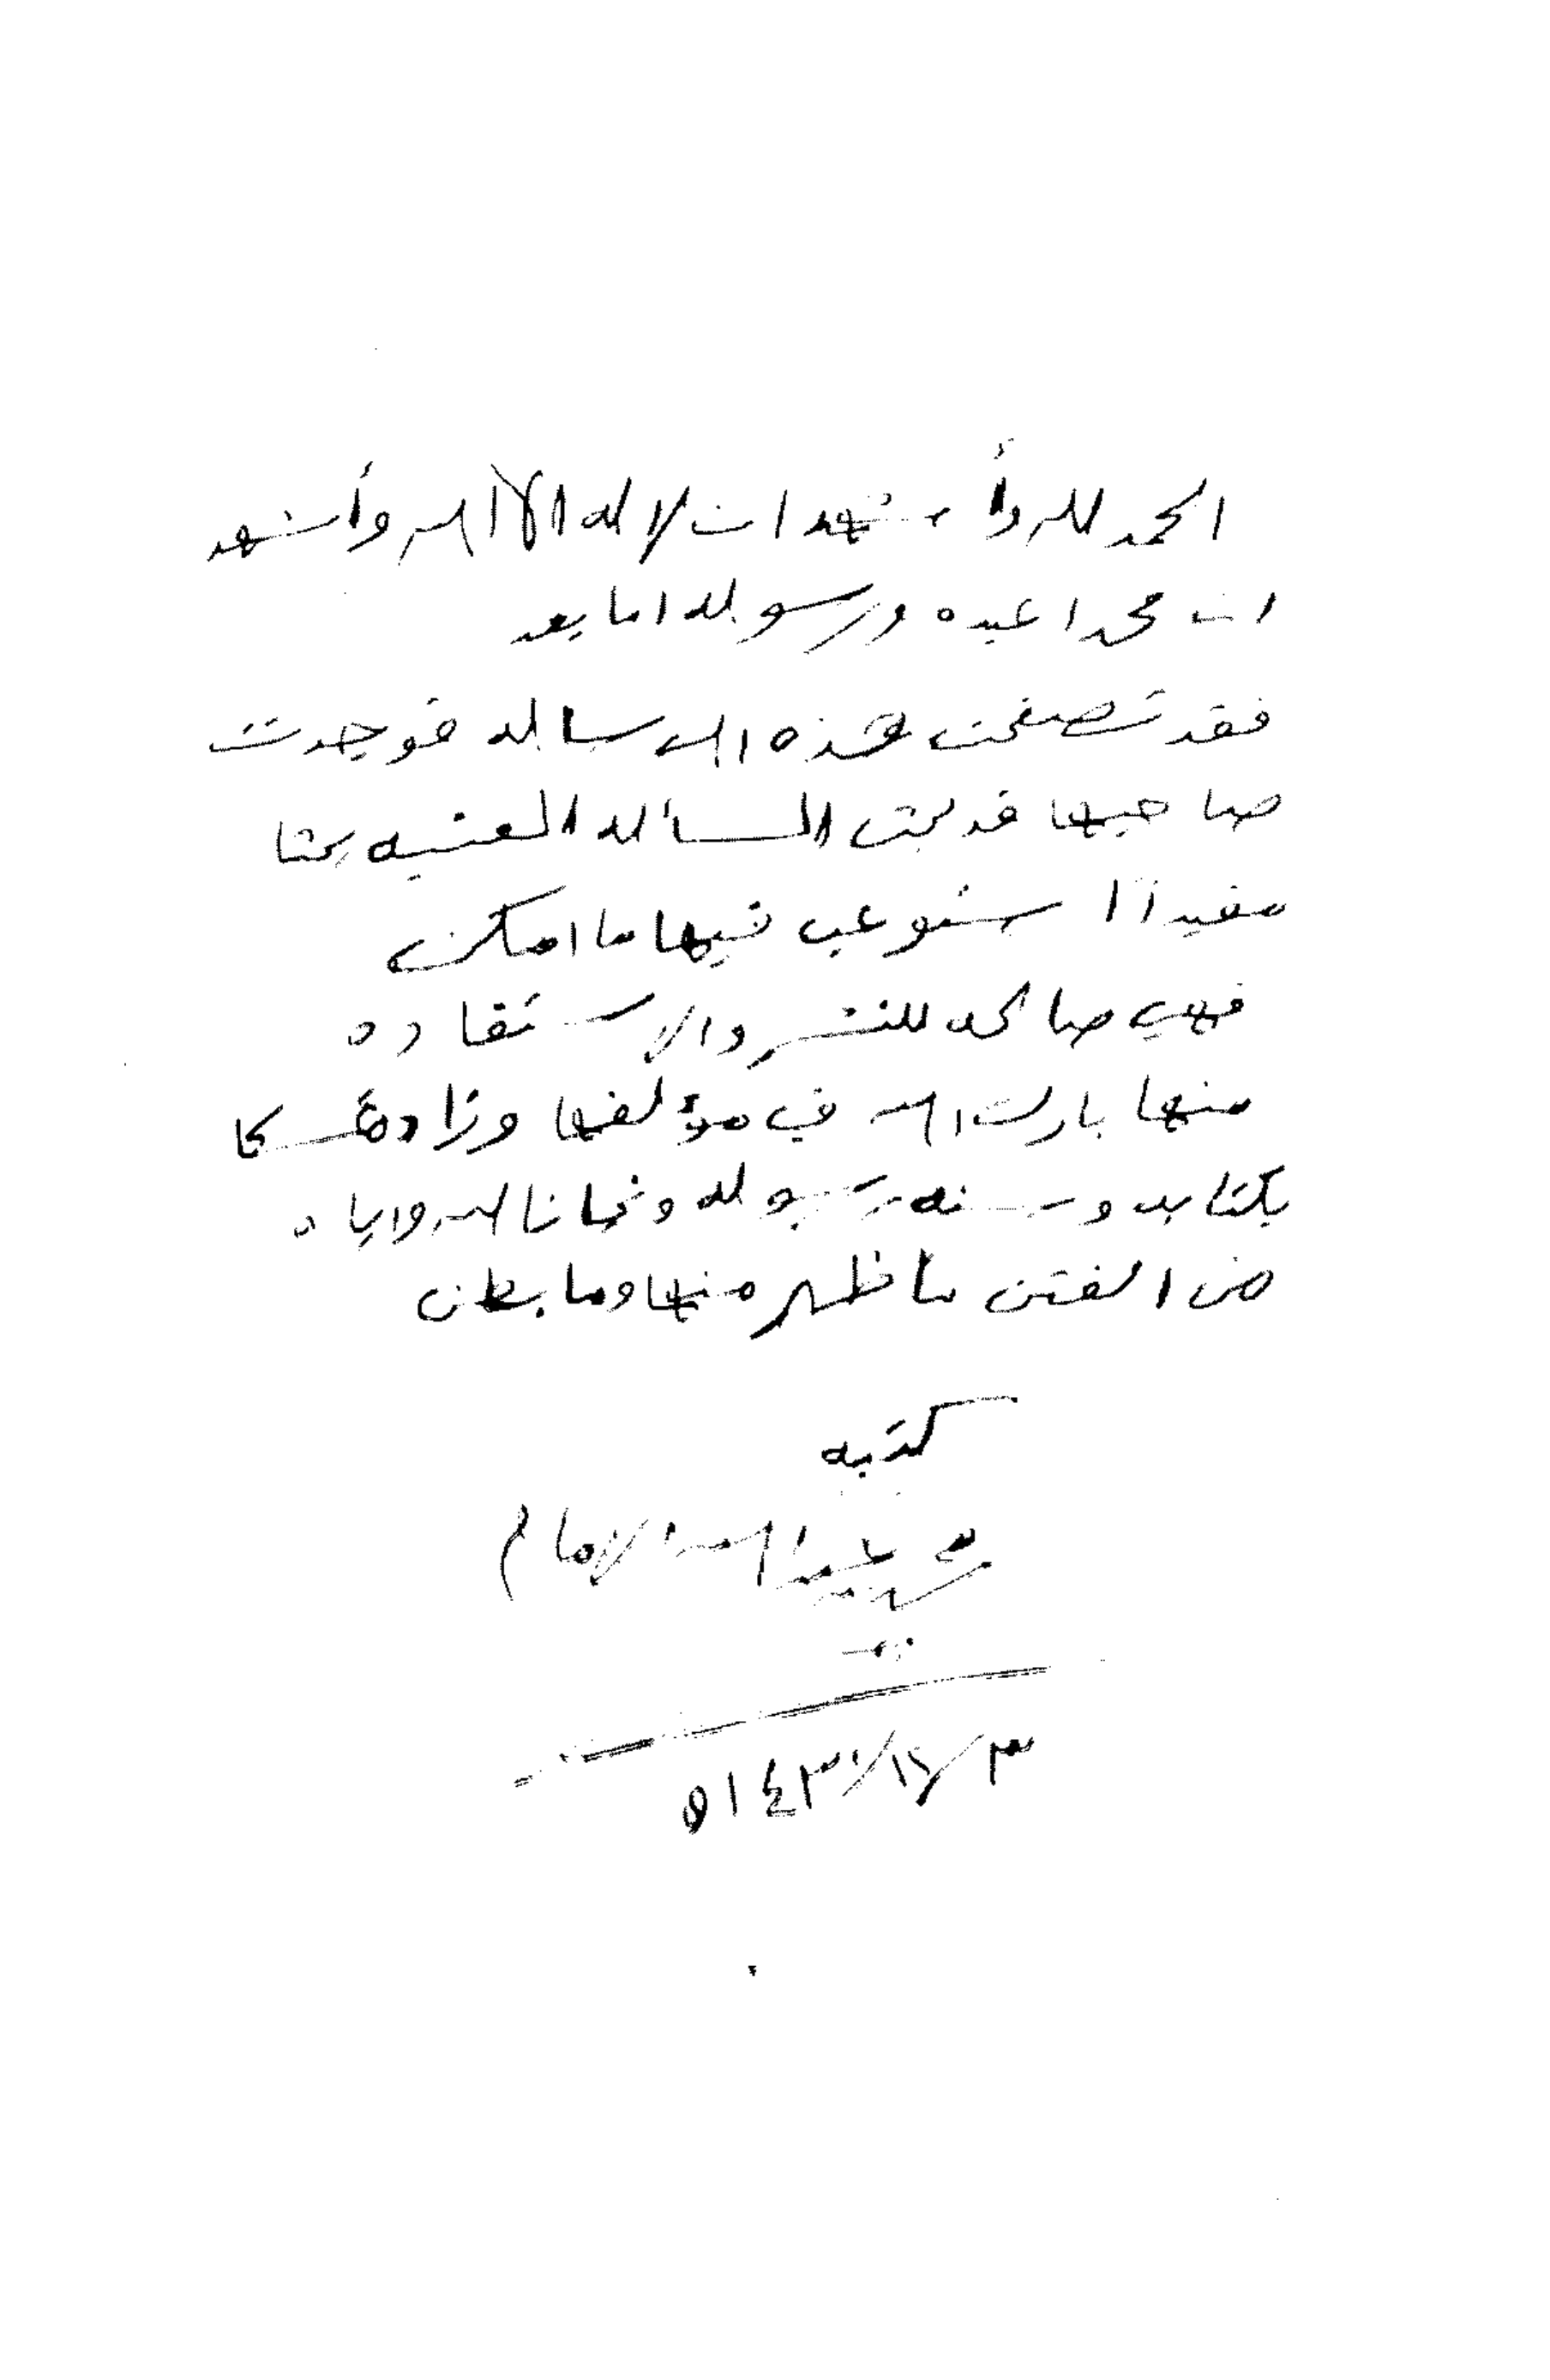 الحمد لله وأشهد ان لا اله الا الله وأشهد
ان محمدا عبده ورسوله اما بعد
فقد تصفحت هذه الرساله فوجدت
صاحبها قد بحث المسأله العنيه بحثا
مفيدا استوعب فيها ما امكن
فهي صالحه للنشر والاستفاده
منها بارك الله في مؤلفها وزاده تمسكا
بكتابه وسنه رسوله ونجانا الله واياه
من الفتن ما ظهر منها وما بطن
كتبه
محمد بن عبدالله الامام